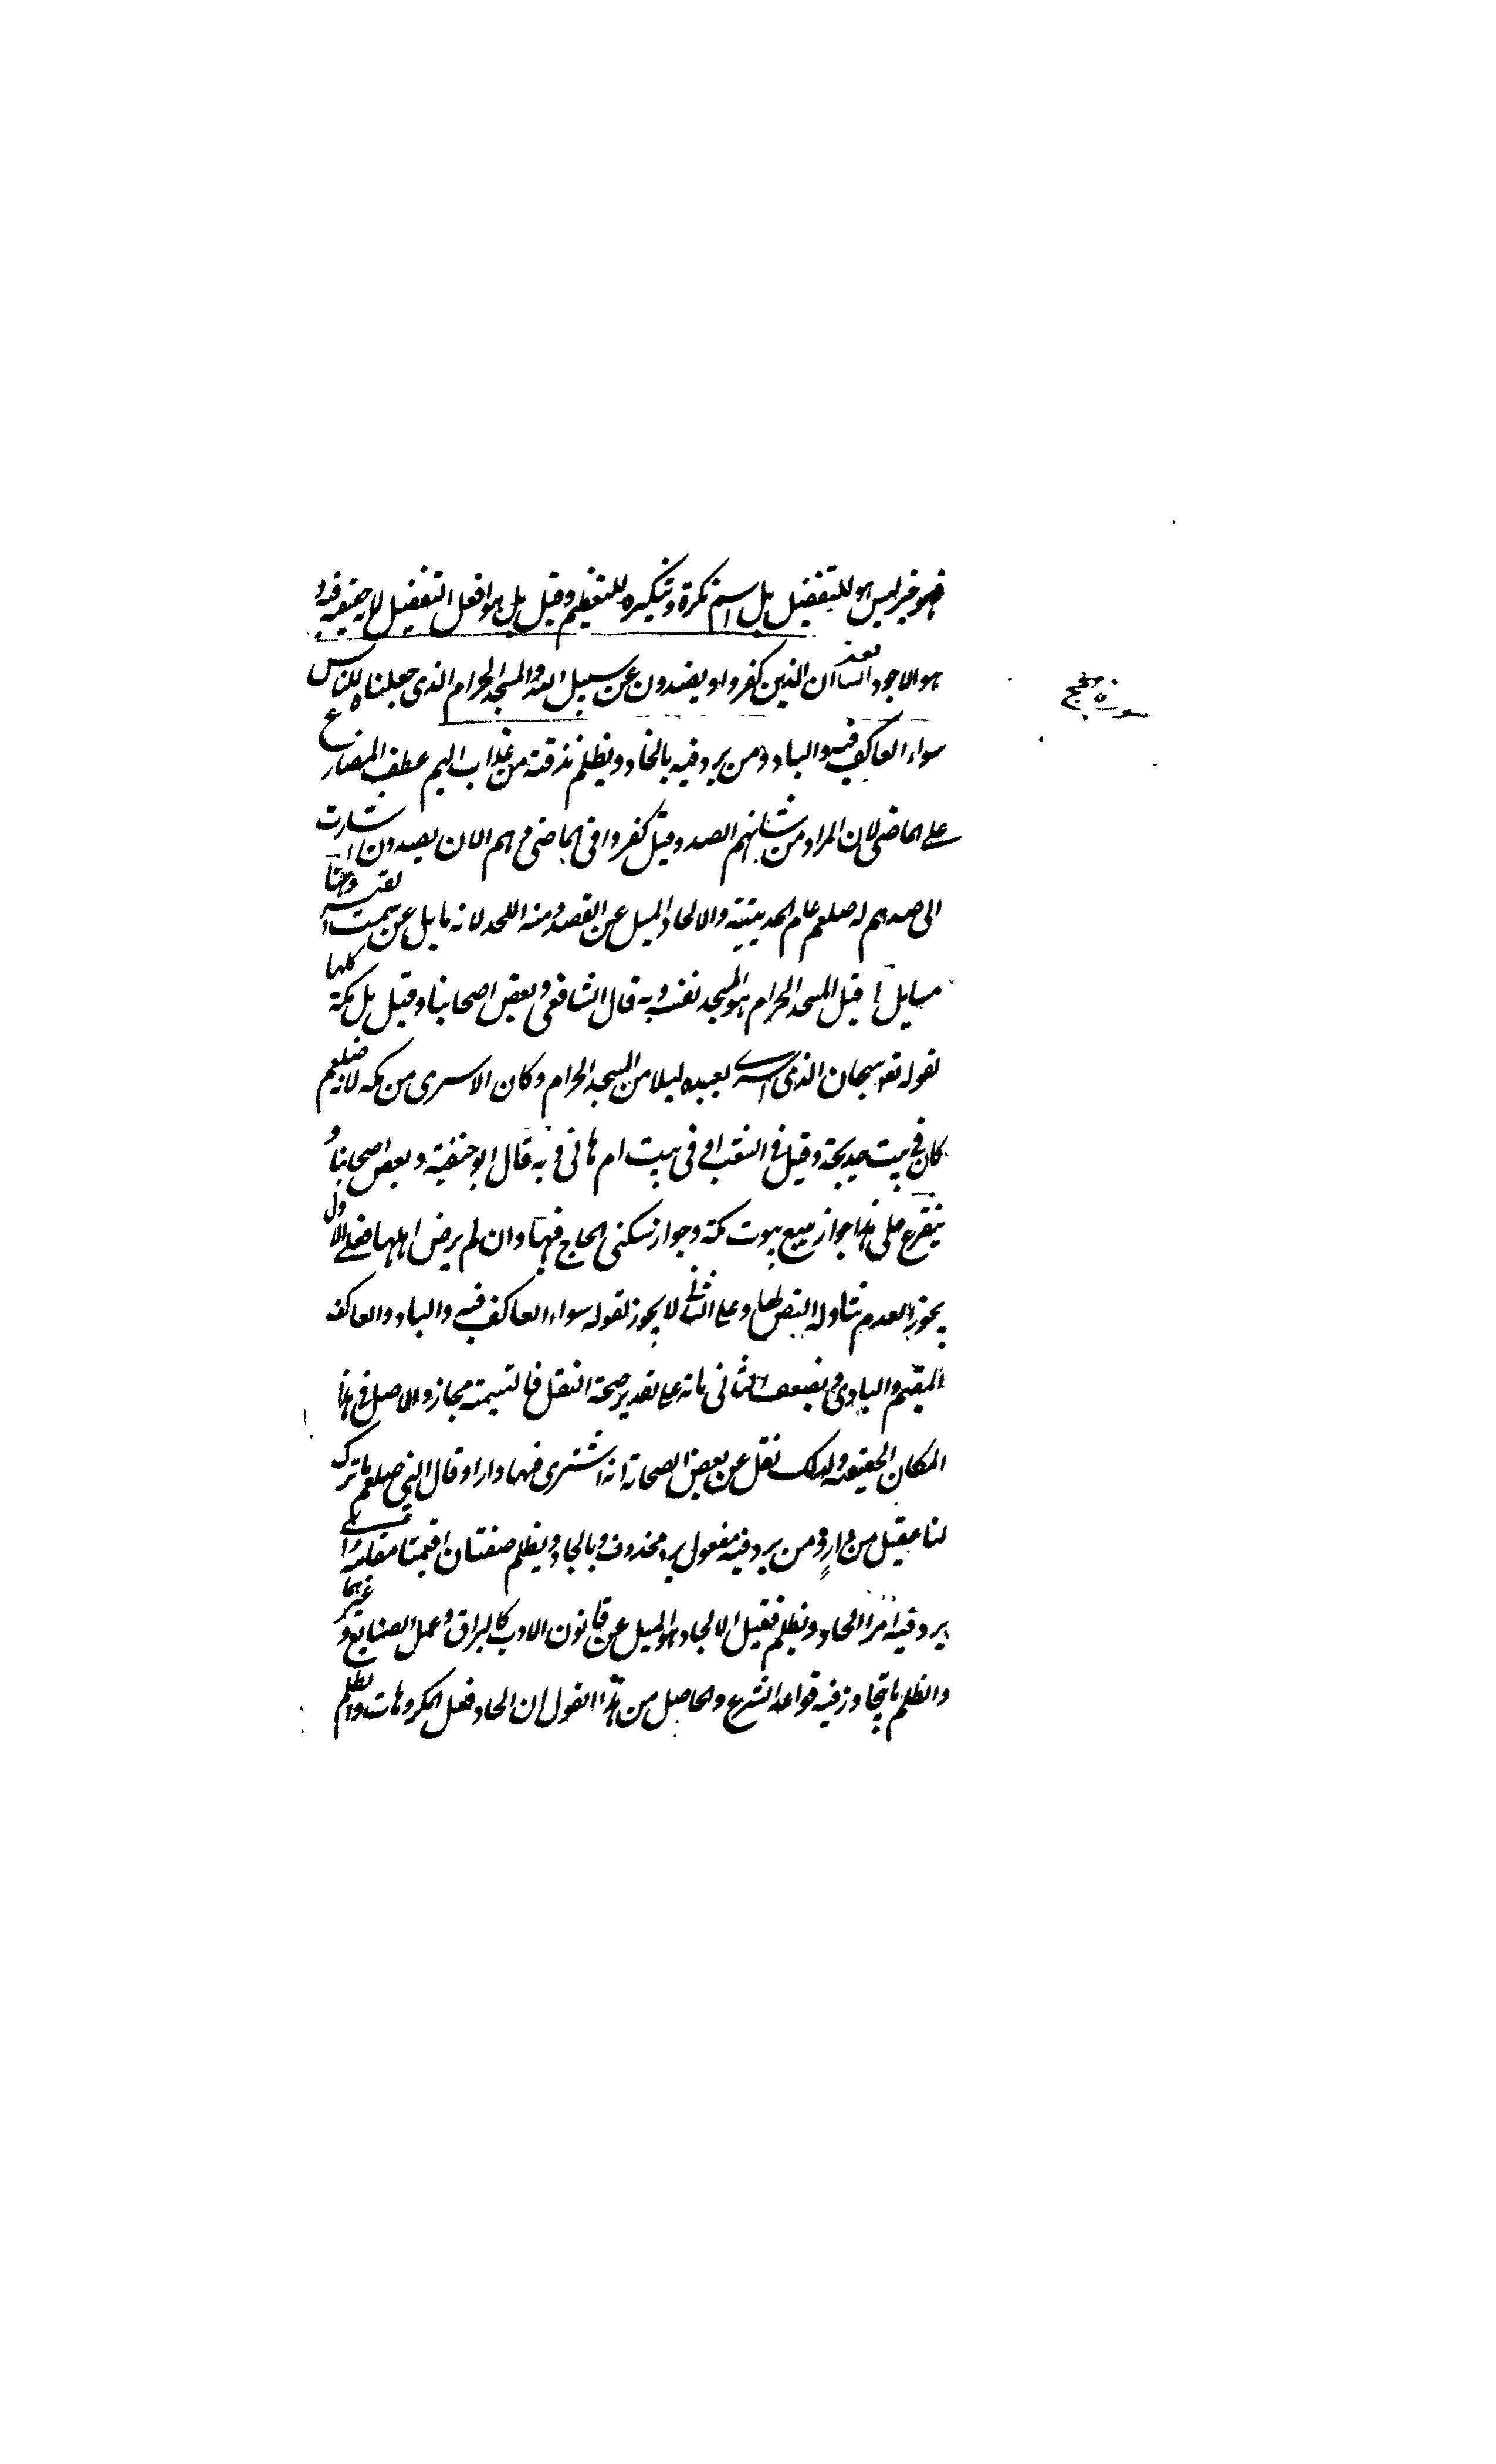 فهو خير ليس هو للتفضيل بل اسم نكرة وتنكيره للتعظيم وقيل بل هو افعل التفضيل لانه حقيقة فيه و
هو الاجود السابعة ان الذين كفروا ويصدون عن سبيل الله والمسجد الحرام الذى جعلناه للناس
سورة حج
سواء العاكف فيه والباد ومن يرد فيه بالحاد وبظلم نذقه من عذاب اليم عطف المضارع
على الماضى لان المراد من شانهم الصد وقيل كفروا فى الماضى وهم الان يصدون اشارت
الى صدهم له صلعم عام الحديبية والالحاد الميل عن القصد ومنه اللحد لانه مايل عن سمت القبر وهنا
مسايل ا قيل المسجد الحرام هو المسجد نفسه وبه قال الشافعى وبعض اصحابنا وقيل بل مكة كلها
لقوله تعه سبحان الذى اسرى بعبده ليلا من المسجد الحرام وكان الاسرى من مكه لانه صلعم
كان فى بيت خديجة وقيل فى الشعب او فى بيت ام هانى وبه قال ابو حنيفة وبعض اصحابنا و
يتفرع على هذا جواز بيع بيوت مكة وجواز سكنى الحاج فيها وان لم يرض اهلها فعلى الاول
يجوز لعدم تناوله النص لها وعلى الثانى لا يجوز لقوله سواء العاكف فيه والباد والعاكف
المقيم والبادى ويضعف الثانى بانه على تقدير صحة النقل فالتسمية مجاز والاصل فى هذا
المكان الحقيقة ولذلك نقل عن بعض الصحابة انه اشترى فيها دارا وقال النبى صلعم ما ترك
لنا عقيل من دار ومن يرد فيه مفعول يرد محذوف وبالحاد وبظلم صفتان اقيمتا مقامه اى
يرد فيه امرا بالحاد وبظلم فقيل الالحاد هو الميل عن قانون الادب كالبزاق وعمل الصنايع وغيرها
والظلم ما يتجاوز فيه قواعد الشرع والحاصل من هذا القول ان الحاد فعل المكروهات والظلم